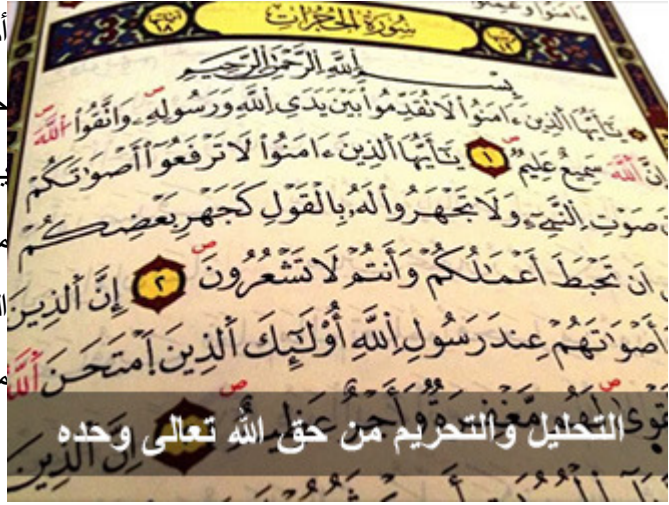 ءامنوا وعملوا
سُورَةُ الحُجُرَاتِ
بِسْمِ اِللَّهِ اِلرَّحْمَٰنِ اِلرَّحِيمِ
يَٰٓأَيُّهَا اَلذِينَ ءَامَنُواْ لَا تُقَدِّمُواْ بَيْنَ يَدَيِ اِللَّهِ وَرَسُولِهِۦ وَاتَّقُواْ اُللَّهَ
إِنَّ اَللَّهَ سَمِيعٌ عَلِيمٌ ١ يَٰٓأَيُّهَا اَلذِينَ ءَامَنُواْ لَا تَرْفَعُوٓاْ أَصْوَٰتَكُمْ
صَوْتِ اِلنَّبِيٓءِ وَلَا تَجْهَرُواْ لَهُۥ بِالْقَوْلِ كَجَهْرِ بَعْضِكُمْ
أَن تَحْبَطَ أَعْمَٰلُكُمْ وَأَنتُمْ لَا تَشْعُرُونَ ٢ إِنَّ اَلذِينَ
أَصْوَٰتَهُمْ عِندَ رَسُولِ اِللَّهِ أُوْلَٰٓئِكَ اَلذِينَ اَمْتَحَنَ اَللَّهُ
لَهُم مَّغْفِرَةٌ وَأَجْرٌ عَظِيمٌ إِنَّ اَلذِينَ
التحليل والتحريم من حق الله تعالى وحده